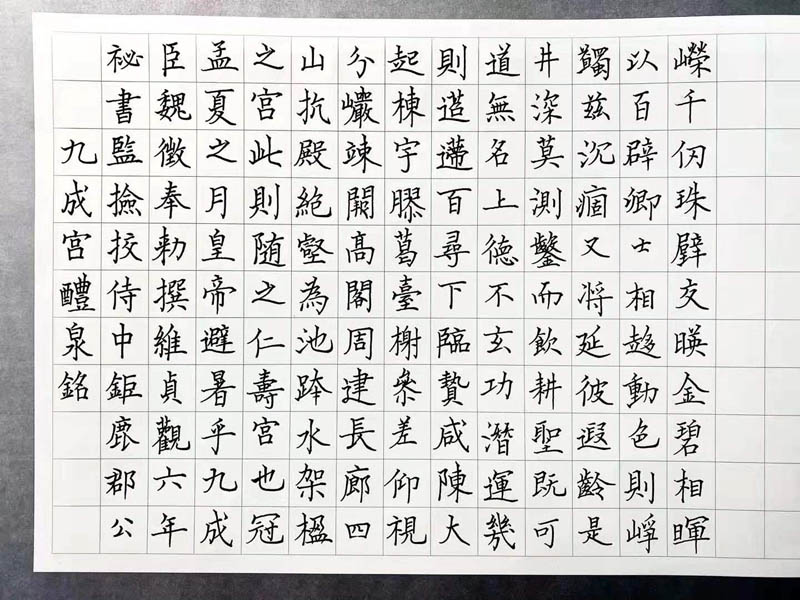 九成宮醴泉銘
祕書監撿挍侍中鉅鹿郡公
臣魏徵奉勅撰維貞觀六年
孟夏之月皇帝避暑乎九成
之宮此則随之仁壽宮也冠
山抗殿絶壑為池跨水架楹
分巖竦闕高閣周建長廊四
起棟宇膠葛臺榭叅差仰視
則迢遰百尋下臨贄咸陳大
道無名上德不玄功潛運幾
井深莫測鑿而飲耕聖既可
躅兹沉痼又将延彼遐齡是
以百辟卿士相趍動色則崢
嶸千仞珠璧交暎金碧相暉